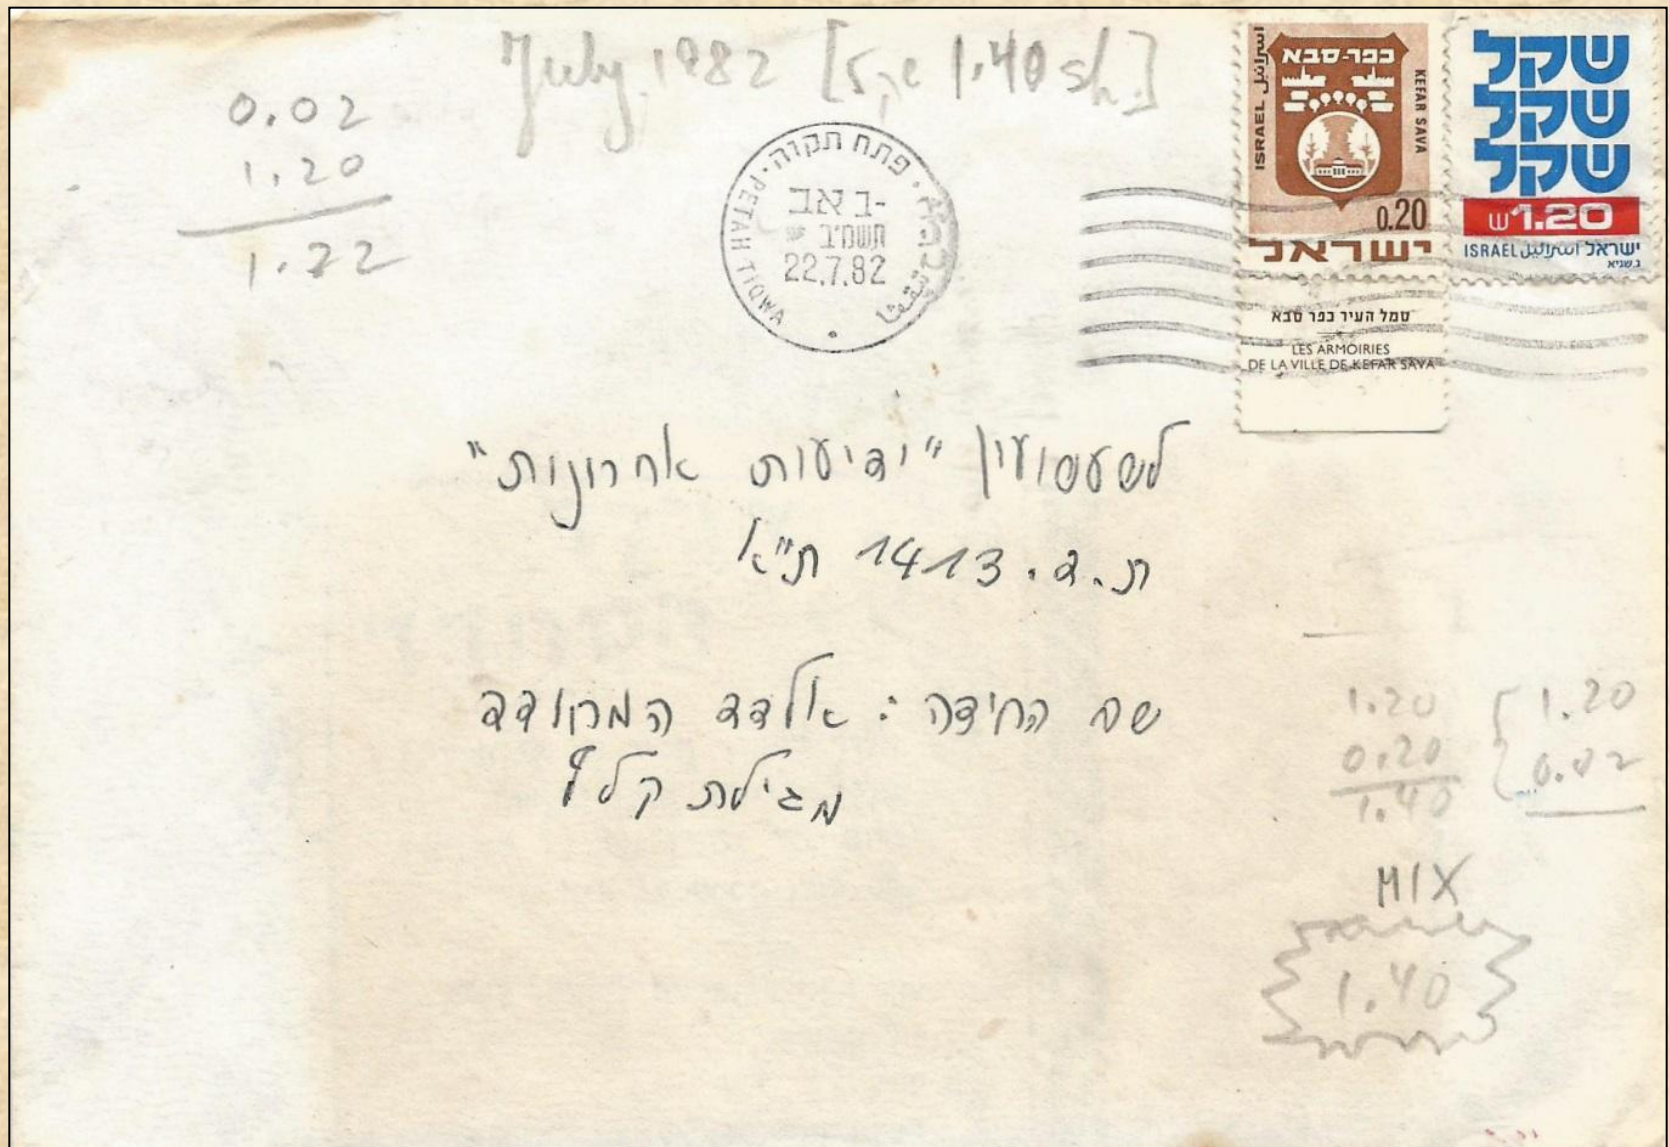 July 1982 [שקל 1.40 sh.]
0.02
1.20
1.22
פתח תקוה
PETAH TIQWA
-ב אב
תשמ"ב
22.7.82
כפר-סבא
KEFAR SAVA
ISRAEL اسرائيل
0.20
ישראל
סמל העיר כפר סבא
LES ARMOIRIES
DE LA VILLE DE KEFAR SAVA
שקל
שקל
שקל
ש 1.20
ISRAEL اسرائيل ישראל
לשעשועון "ידיעות אחרונות"
ת.ד. 1413 ת"א
שם החידה: אלדד המקודד
מגילת קלף
1.20
0.20
1.40
1.20
0.02
MIX
1.40